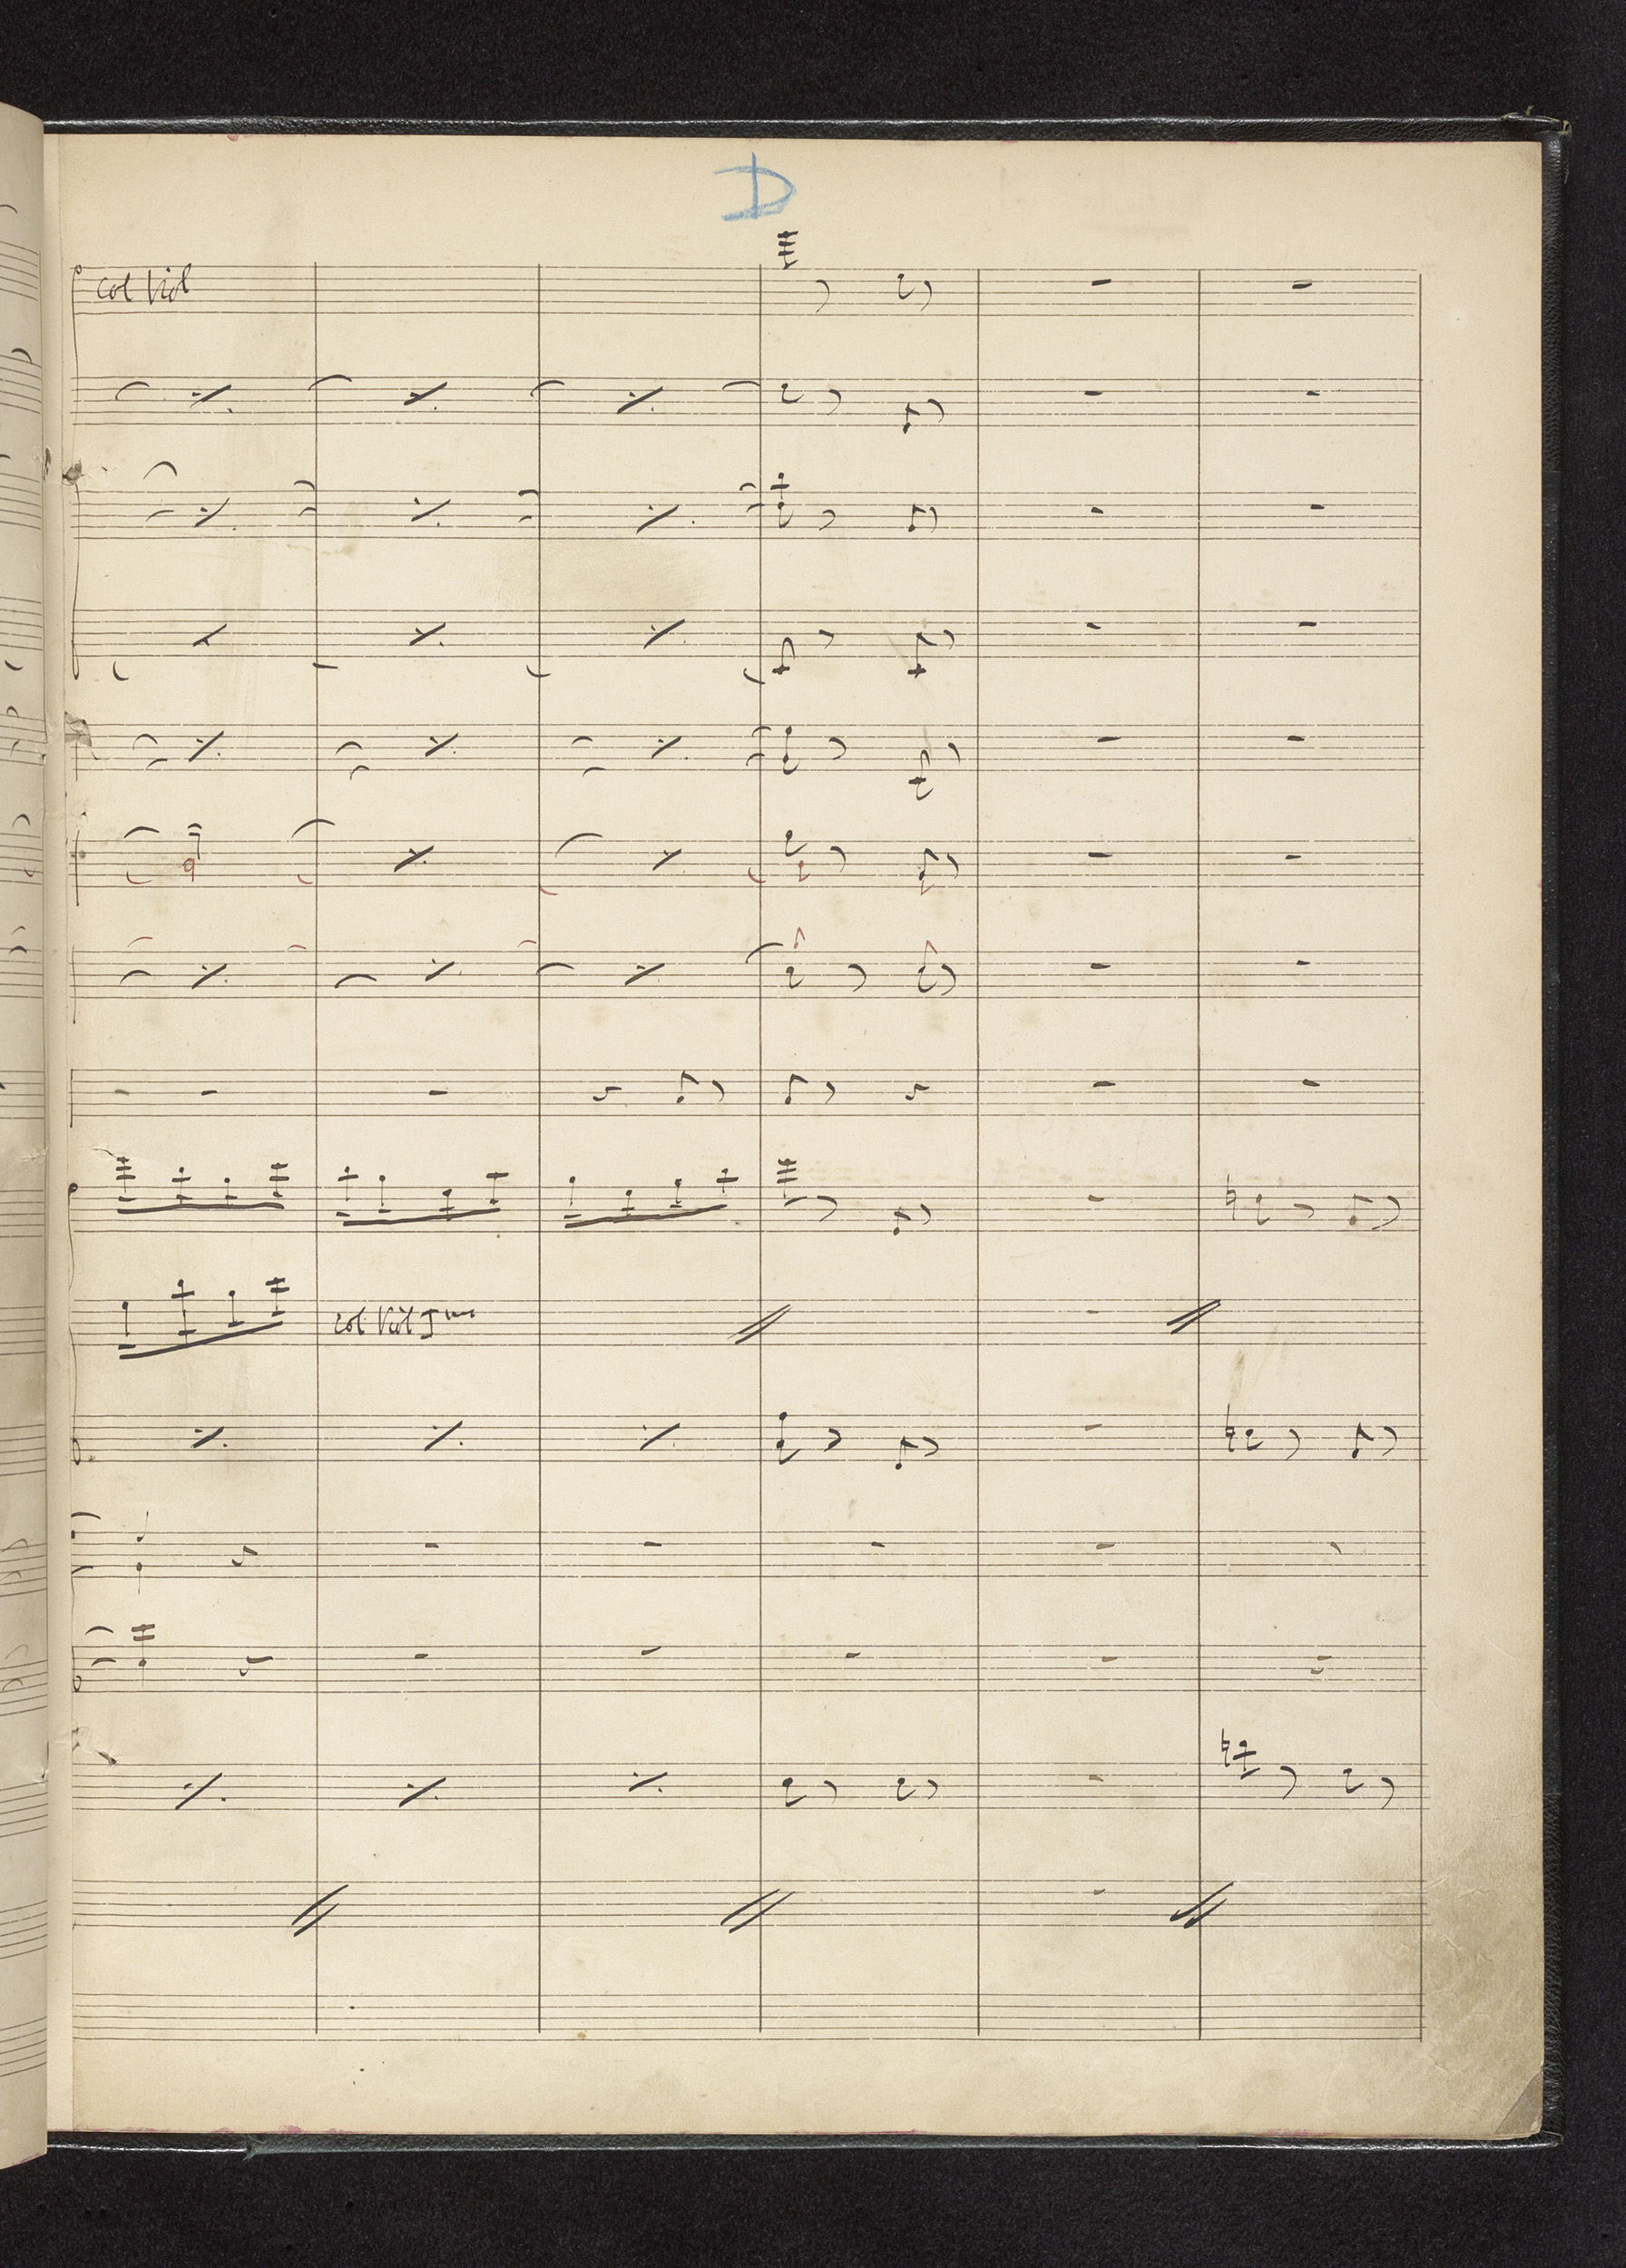 D
col Viol
col Viol Imo